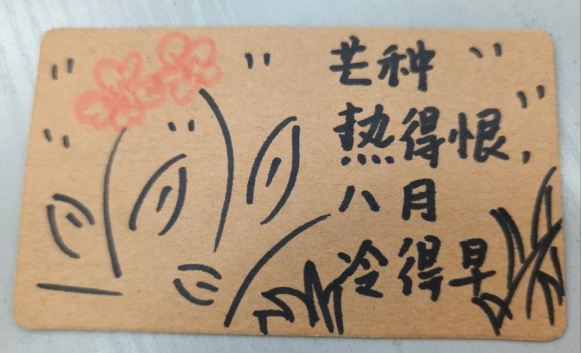 芒种
热得恨,
八月
冷得早